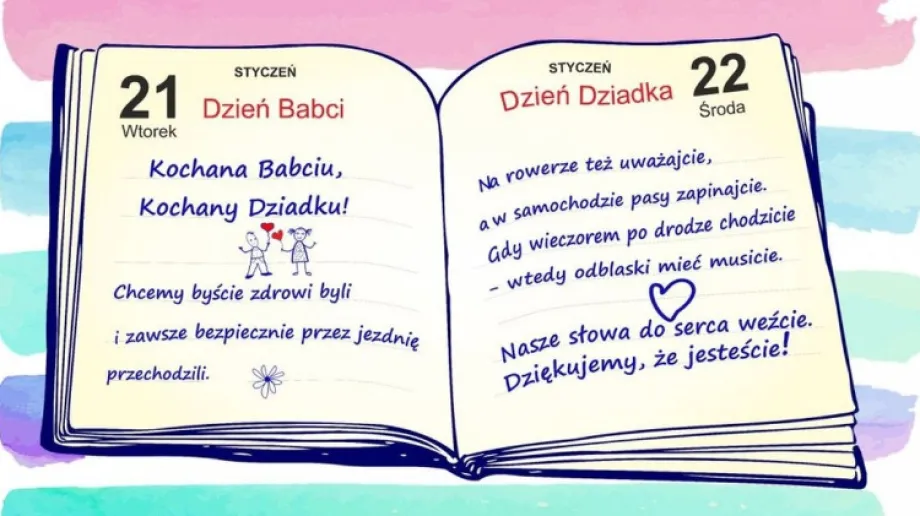 STYCZEŃ
21
Wtorek
Dzień Babci
Kochana Babciu,
Kochany Dziadku!
Chcemy byście zdrowi byli
i zawsze bezpiecznie przez jezdnię
przechodzili.
STYCZEŃ
22
Środa
Dzień Dziadka
Na rowerze też uważajcie,
a w samochodzie pasy zapinajcie.
Gdy wieczorem po drodze chodzicie
- wtedy odblaski mieć musicie.
Nasze słowa do serca weźcie.
Dziękujemy, że jesteście!